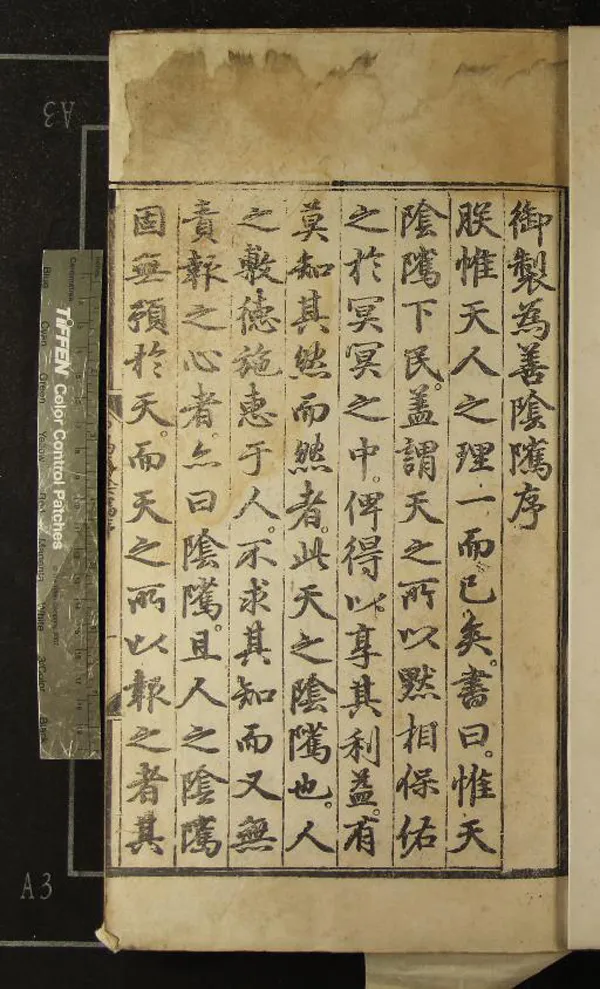 御製為善陰隲序
朕惟天人之理一而已矣。書曰。惟天
陰隲下民。盖謂天之所以默相保佑
之於冥冥之中。俾得以享其利益。有
莫知其然而然者。此天之陰隲也。人
之敷德施惠于人。不求其知而又無
責報之心者。亦曰陰隲。且人之陰隲
固無預於天。而天之所以報之者其
A3
A3
TIFFEN Color Control Patches
Blue
Cyan
Green
Yellow
Red
Magenta
White
3/Color
Black
Centimetres